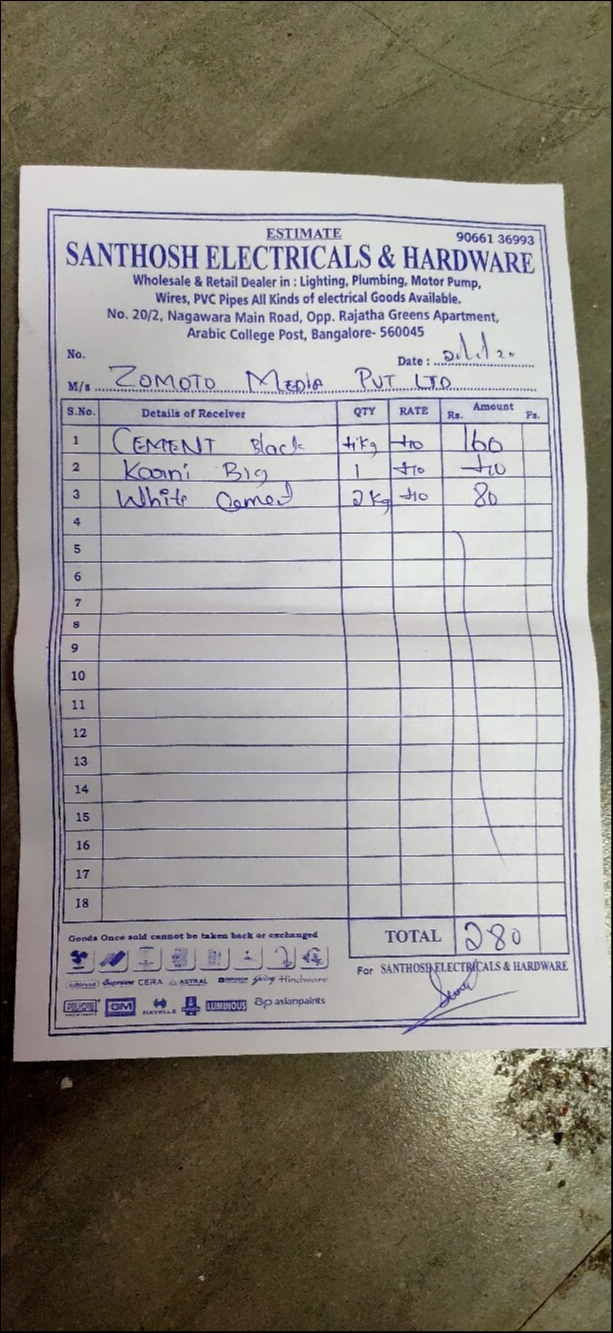 ESTIMATE
90661 36993
SANTHOSH ELECTRICALS & HARDWARE
Wholesale & Retail Dealer in : Lighting, Plumbing, Motor Pump,
Wires, PVC Pipes All Kinds of electrical Goods Available.
No. 20/2, Nagawara Main Road, Opp. Rajatha Greens Apartment,
Arabic College Post, Bangalore- 560045
No. Date :
M/s ZOMOTO MEDIA PVT LTD
S.No. Details of Receiver QTY RATE Rs. Amount Ps.
1 CEMENT Black 4kg 40 160
2 Kaarni Big 1 40 40
3 White Cement 2 kg 40 80
4
5
6
7
8
9
10
11
12
13
14
15
16
17
18
Goods Once sold cannot be taken back or exchanged
TOTAL 280
For SANTHOSH ELECTRICALS & HARDWARE
Supreme CERA ASTRAL Hindware
GM HAVELLS LUMINOUS ap asianpaints